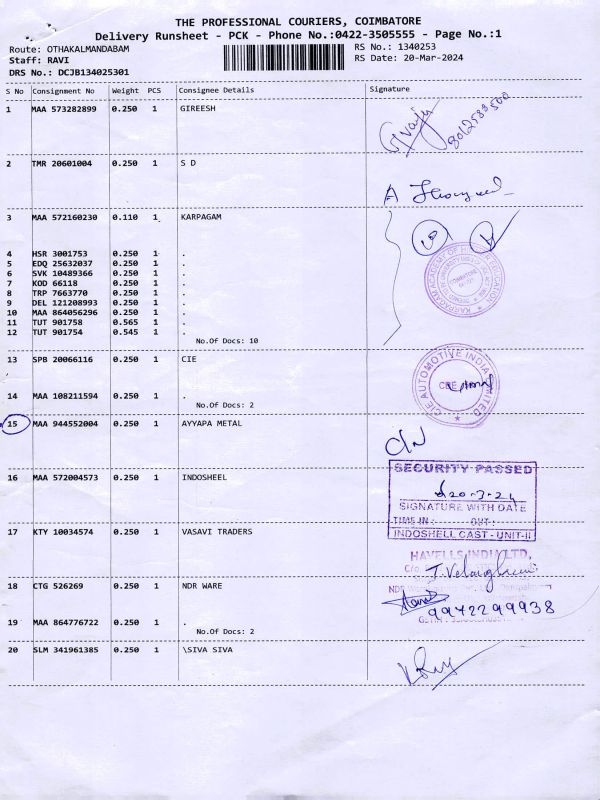 THE PROFESSIONAL COURIERS, COIMBATORE
Delivery Runsheet - PCK - Phone No.:0422-3505555 - Page No.:1
Route: OTHAKALMANDABAM
RS No.: 1340253
Staff: RAVI
RS Date: 20-Mar-2024
DRS No.: DCJB134025301
S No Consignment No Weight PCS Consignee Details Signature
1 MAA 573282899 0.250 1 GIREESH
2 TMR 20601004 0.250 1 S D
3 MAA 572160230 0.110 1 KARPAGAM
4 HSR 3001753 0.250 1 .
5 EDQ 25632037 0.250 1 .
6 SVK 10489366 0.250 1 .
7 KOD 66118 0.250 1 .
8 TRP 7663770 0.250 1 .
9 DEL 121208993 0.250 1 .
10 MAA 864056296 0.250 1 .
11 TUT 901758 0.565 1 .
12 TUT 901754 0.545 1 .
No.Of Docs: 10
13 SPB 20066116 0.250 1 CIE
CIE AUTOMOTIVE INDIA LIMITED
14 MAA 108211594 0.250 1 .
No.Of Docs: 2
15 MAA 944552004 0.250 1 AYYAPA METAL
C/N
16 MAA 572004573 0.250 1 INDOSHEEL
SECURITY PASSED
20-3-24
SIGNATURE WITH DATE
TIME IN : OUT :
INDOSHELL CAST - UNIT-II
17 KTY 10034574 0.250 1 VASAVI TRADERS
HAVELLS INDIA LTD,
C/o
18 CTG 526269 0.250 1 NDR WARE
9942299938
19 MAA 864776722 0.250 1 .
No.Of Docs: 2
20 SLM 341961385 0.250 1 \SIVA SIVA